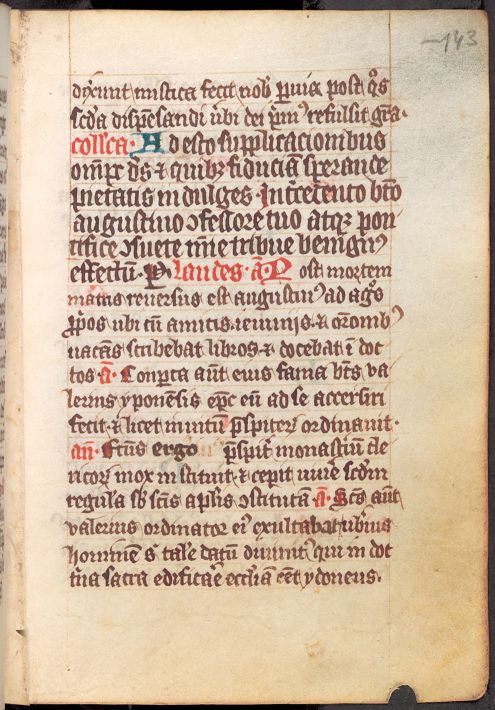 143
dyxunt mistica fecit nob ꝑuia post q̄s
scd̄a dispēsandi ubi dei pͥmꝰ refulsit grā
coll̄ca. Adesto supplicacionibus
om̄pꝫ ds̄ ⁊ quibꝫ fiduciā sperande
pietatis indulges. Int̄ecedento bt̄o
augustino ↄfessore tuo atqꝫ pon
tifice ↄsuete mīe tribue benignꝰ
effectū. P laudes. ā. Post mortem
matris reuersus est augustinꝰ ad ag̃s
ꝓpos ubi cū amicis. ieiuniis. ⁊ or̄onibꝰ
uacās scribebat libros. ⁊ docebat ī doc
tos ā. Conp̱ta aūt eius fama bt̄s va
lerius yponēsis ep̄c eū ad se accersiri
fecit. ⁊ licet inuitū p̄spiteꝝ ordinauit.
an̄. Fctūs ergo p̄spit̄ monastīum cle
ricoꝝ mox instituit. ⁊ cepit uiuē scd̄m
regulā sb̄ scīs aplīs ↄstitutā ā. Scs̄ aūt
valerius ordinator eiꝰ exultabat uberius
hominē s̄ talē datū diuinitꝰ qui in doc
tͥna sacra edificaē eccl̄iā eēt ydoneus.